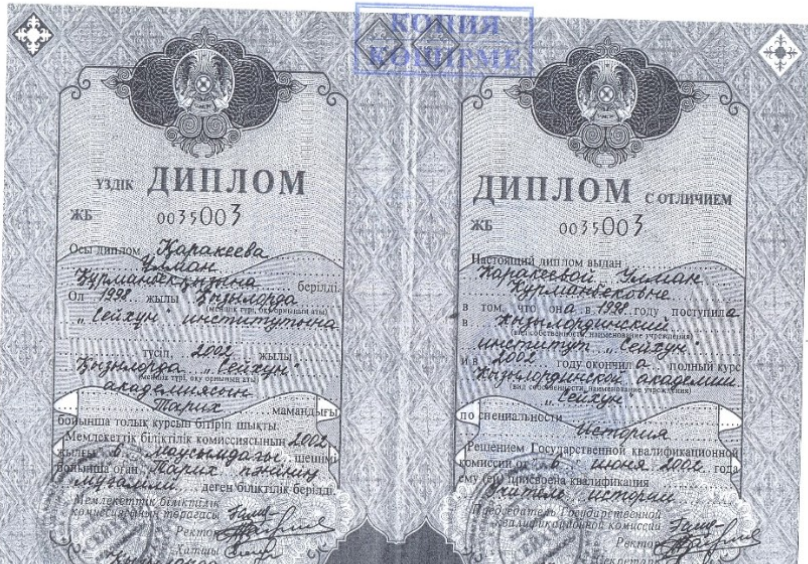 КОПИЯ
КӨШІРМЕ
ҮЗДІК ДИПЛОМ
ЖБ 0035003
Осы диплом Қаракеева
Улман
Құрманбекқызына берілді
Ол 1998 жылы Қызылорда
(меншік түрі, оқу орнының аты)
"Сейхун" институтына
түсіп, 2002 жылы
Қызылорда "Сейхун"
(меншік түрі, оқу орнының аты)
академиясын
Тарих мамандығы
бойынша толық курсын бітіріп шықты.
Мемлекеттік біліктілік комиссиясының 2002
жылғы 6 маусымдағы шешімі
бойынша оған "Тарих пәнінің
мұғалімі" деген біліктілік берілді.
Мемлекеттік біліктілік
комиссиясының төрағасы
Ректор
Хатшы
Қызылорда
ДИПЛОМ С ОТЛИЧИЕМ
ЖБ 0035003
Настоящий диплом выдан
Каракеевой Улман
Курманбековне
в том, что она в 1998 году поступила
в Кызылординский
(вид собственности, наименование учреждения)
институт "Сейхун"
и в 2002 году окончила полный курс
Кызылординской академии
(вид собственности, наименование учреждения)
"Сейхун"
по специальности
История
Решением Государственной квалификационной
комиссии от 6 июня 2002 года
ему (ей) присвоена квалификация
Учитель истории
Председатель Государственной
квалификационной комиссии
Ректор
Секретарь